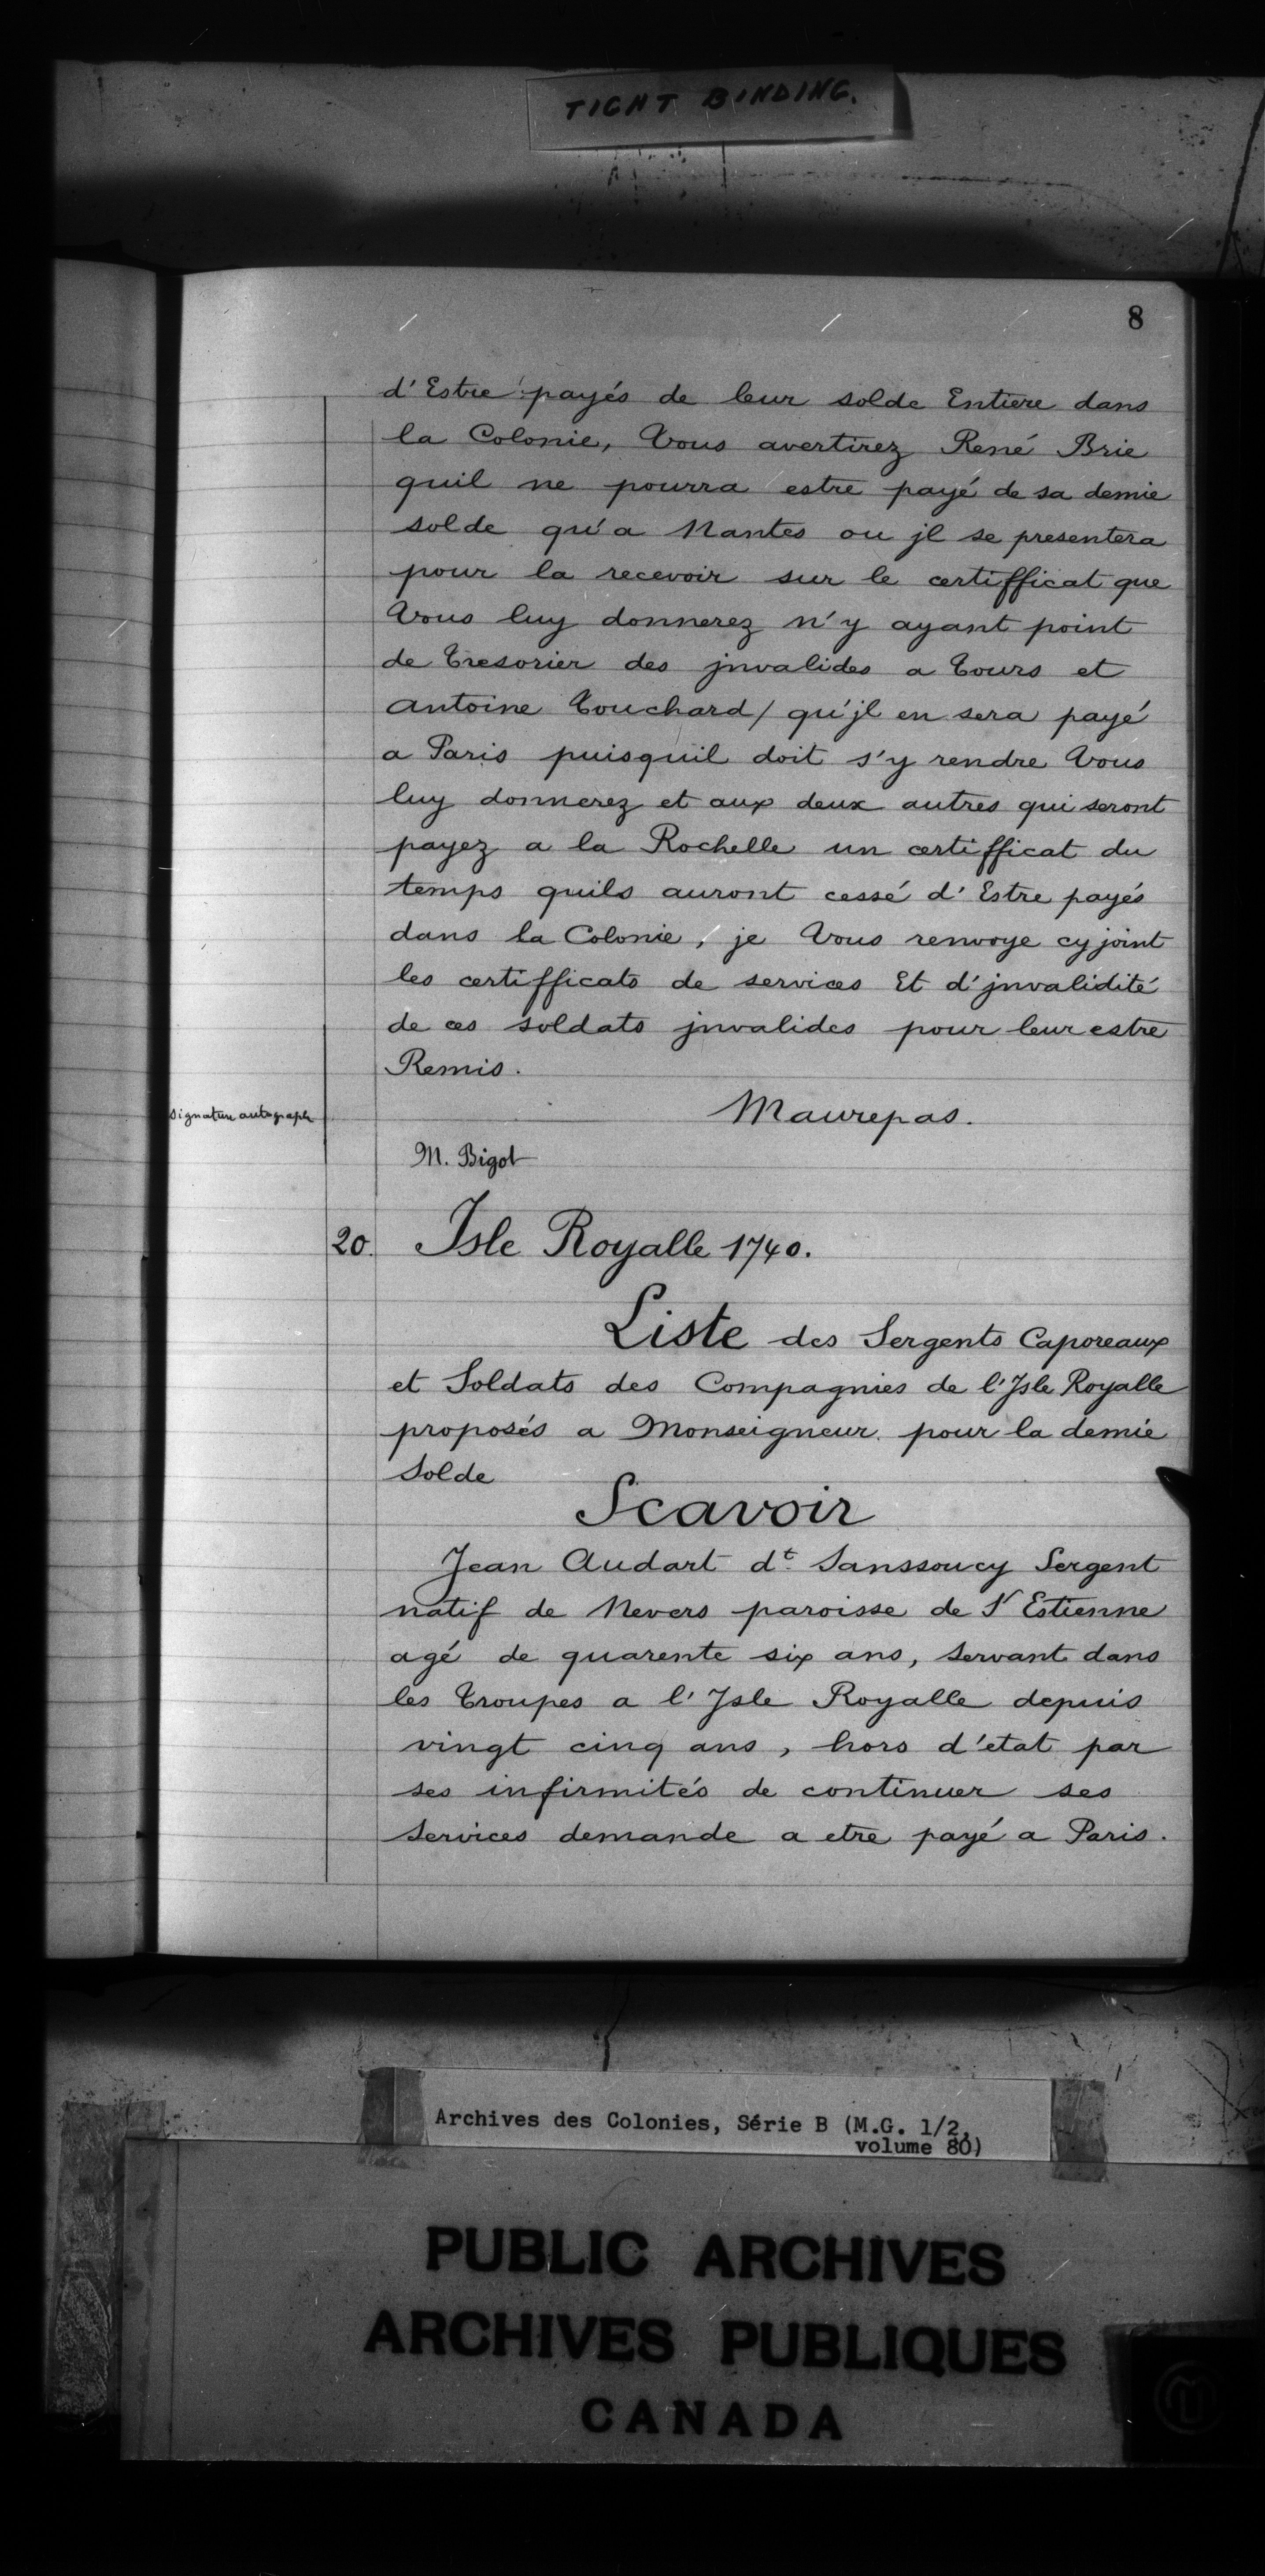 TIGHT BINDING.
8
d'Estre payés de leur solde Entiere dans
la Colonie, Vous avertirez René Brie
quil ne pourra estre payé de sa demie
solde qu'a Nantes ou jl se presentera
pour la recevoir sur le certifficat que
Vous luy donnerez n'y ayant point
de Tresorier des jnvalides a Tours et
Antoine Touchard / qu'jl en sera payé
a Paris puisquil doit s'y rendre Vous
luy donnerez et aux deux autres qui seront
payez a la Rochelle un certifficat du
temps quils auront cessé d'Estre payés
dans la Colonie, je Vous renvoye cy joint
les certifficats de services Et d'jnvalidité
de ces soldats jnvalides pour leur estre
Remis.
signature autographe
Maurepas.
M. Bigot
20. Isle Royalle 1740.
Liste des Sergents Caporeaux
et Soldats des Compagnies de l'Isle Royalle
proposés a Monseigneur pour la demie
Solde
Scavoir
Jean Audart dt. Sanssoucy Sergent
natif de Nevers paroisse de St Estienne
agé de quarente six ans, servant dans
les Troupes a l'Isle Royalle depuis
vingt cinq ans, hors d'etat par
ses infirmités de continuer ses
services demande a etre payé a Paris.
Archives des Colonies, Série B (M.G. 1/2,
volume 80)
PUBLIC ARCHIVES
ARCHIVES PUBLIQUES
CANADA